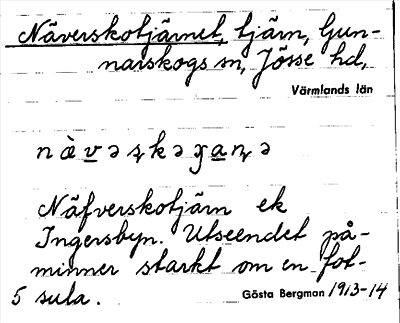 Näverskotjärnet, tjärn, Gun-
narskogs sn, Jösse hd,
Värmlands län
Näfverskotjärn ek
Ingersbyn. Utseendet på-
minner starkt om en fot-
5 sula. Gösta Bergman 1913-14